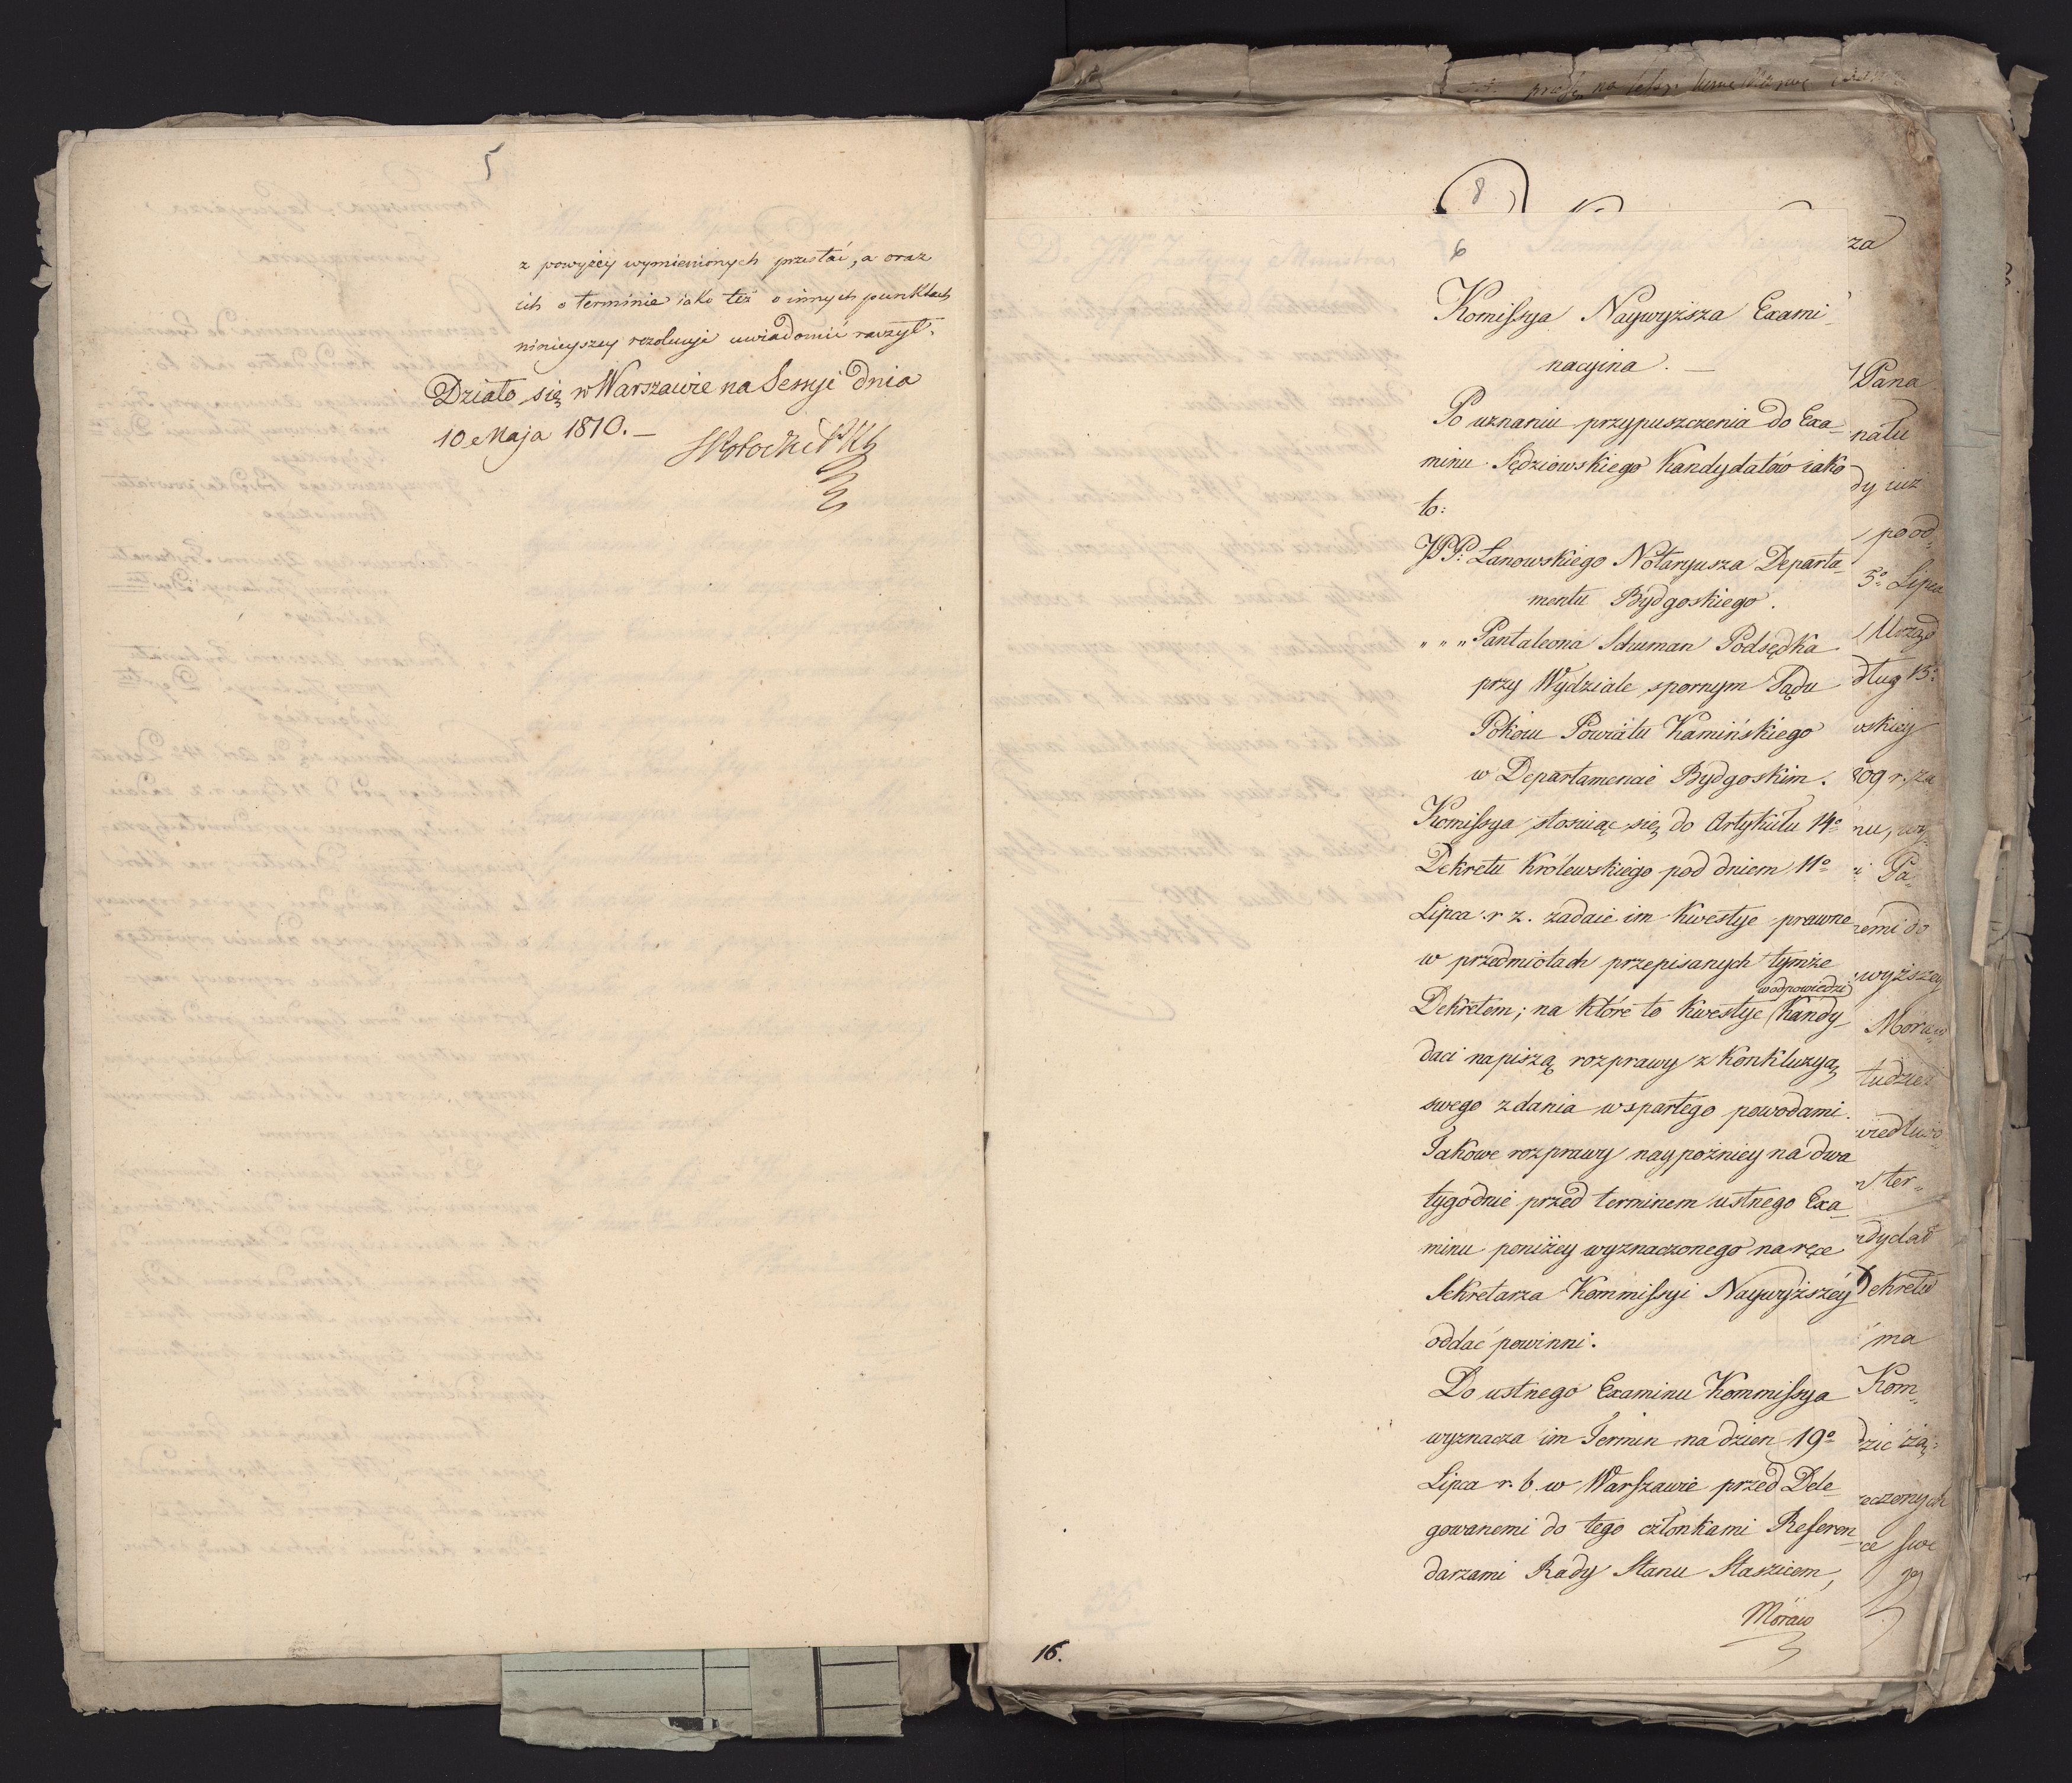 5
z powyżey wymienionych przesłać, a oraz
ich o terminie iako też o innych punktach
ninieyszey rezolucyi uwiadomić raczył.
Działo się w Warszawie na Sessyi dnia
10 Maja 1810. —
8
6
Komissya Naywyższa Exami-
nacyina. —
Po uznaniu przypuszczenia do Exa-
minu Sędziowskiego Kandydatów iako
to:
JPP: Lanowskiego Notaryusza Departa-
mentu Bydgoskiego.
" " " Pantaleona Schuman Podsędka
przy Wydziale spornym Sądu
Pokoiu Powiatu Kamińskiego
w Departamencie Bydgoskim.
Komissya stosuiąc się do Artykułu 14º
Dekretu Królewskiego pod dniem 11º
Lipca r z. zadaie im Kwestye prawne
w przedmiotach przepisanych tymże
w odpowiedzi
Dekretem; na które to Kwestye Kandy-
daci napiszą rozprawy z Konkluzyą
swego zdania wspartego powodami.
Takowe rozprawy naypożniey na dwa
tygodnie przed terminem ustnego Exa-
minu poniżey wyznaczonego na ręce
Sekretarza Kommissyi Naywyższéy
oddać powinni.
Do ustnego Examinu Kommissya
wyznacza im Termin na dzien 19º
Lipca r. b. w Warszawie przed Dele-
gowanemi do tego członkami Referen-
darzami Rady Stanu Staszicem,
Moraw
16.
za
Pana
natu
dy iuż
po od-
5º Lipca
Urzęd
dług 15º
wskiey
809 r. za
Pa-
remi do
wyższey
Moraw
tudzież
wiedliwo-
ter-
ndydat
Dekretu
ma
Kom-
reczonych